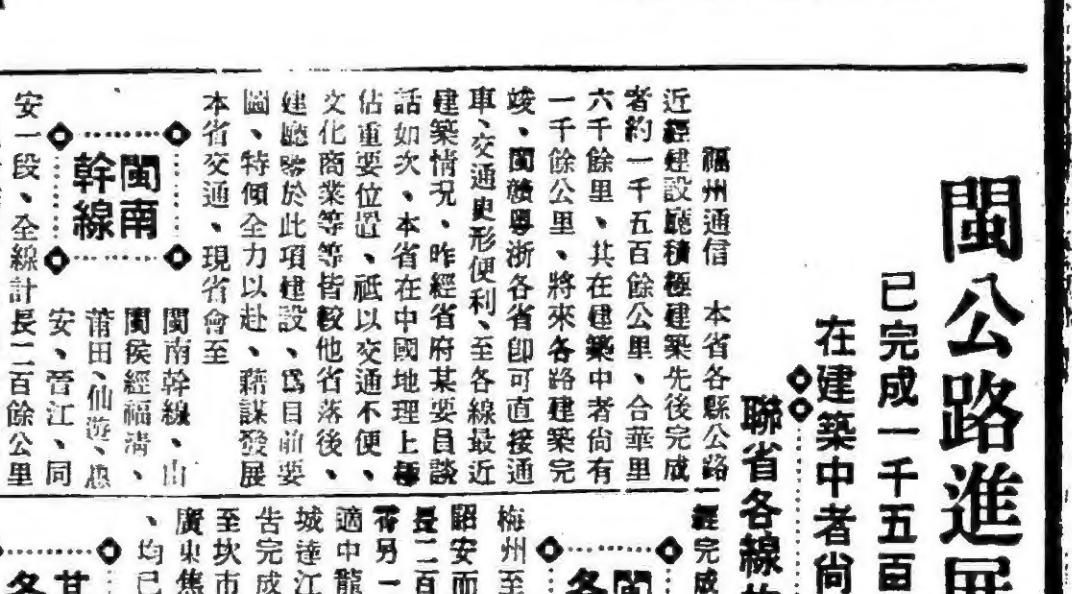 閩公路進展
已完成一千五百
在建築中者尙
聯省各線
福州通信　本省各縣公路
近經建設廳積極建築先後完成
者約一千五百餘公里、合華里
六千餘里、共在建築中者尙有
一千餘公里、將來各路建築完
竣、閩贛粵浙各省卽可直接通
車、交通更形便利、至各線最近
建築情況、昨經省府某要員談
話如次、本省在中國地理上極
佔重要位置、祇以交通不便、
文化商業等等皆較他省落後、
建廳鑒於此項建設、爲目前要
圖、特傾全力以赴、藉謀發展
本省交通、現省會至
閩南
幹線
閩南幹線、由
閩侯經福清、
莆田、仙遊、惠
安、晉江、同
安一段、全線計長二百餘公里
經完成
閩
各
梅州至
詔安而
長二百
另一
適中龍
城達江
告完成
至坎市
廣東焦
、均已
其
各